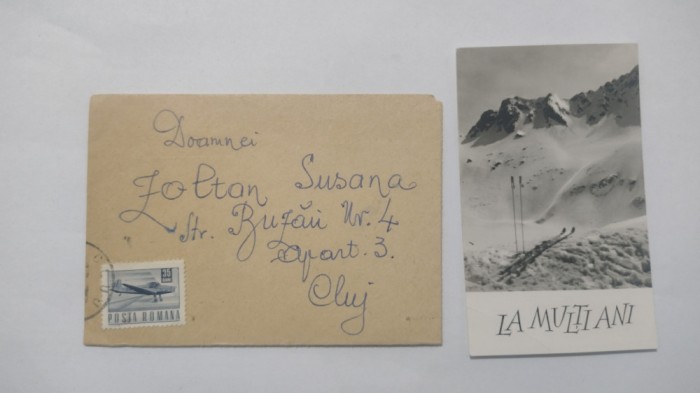 Doamnei
Zoltan Susana
Str. Buzău Nr. 4
Apart. 3.
Cluj
POSTA ROMANA
LA MULȚI ANI